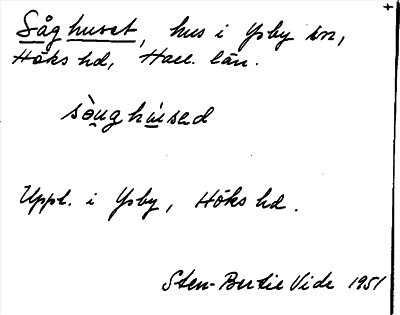 Såghuset, hus i Ysby sn,
Höks hd, Hall. län.
sòu̠ghú̠sed
Uppt. i Ysby, Höks hd.
Sten-Bertil Vide 1951